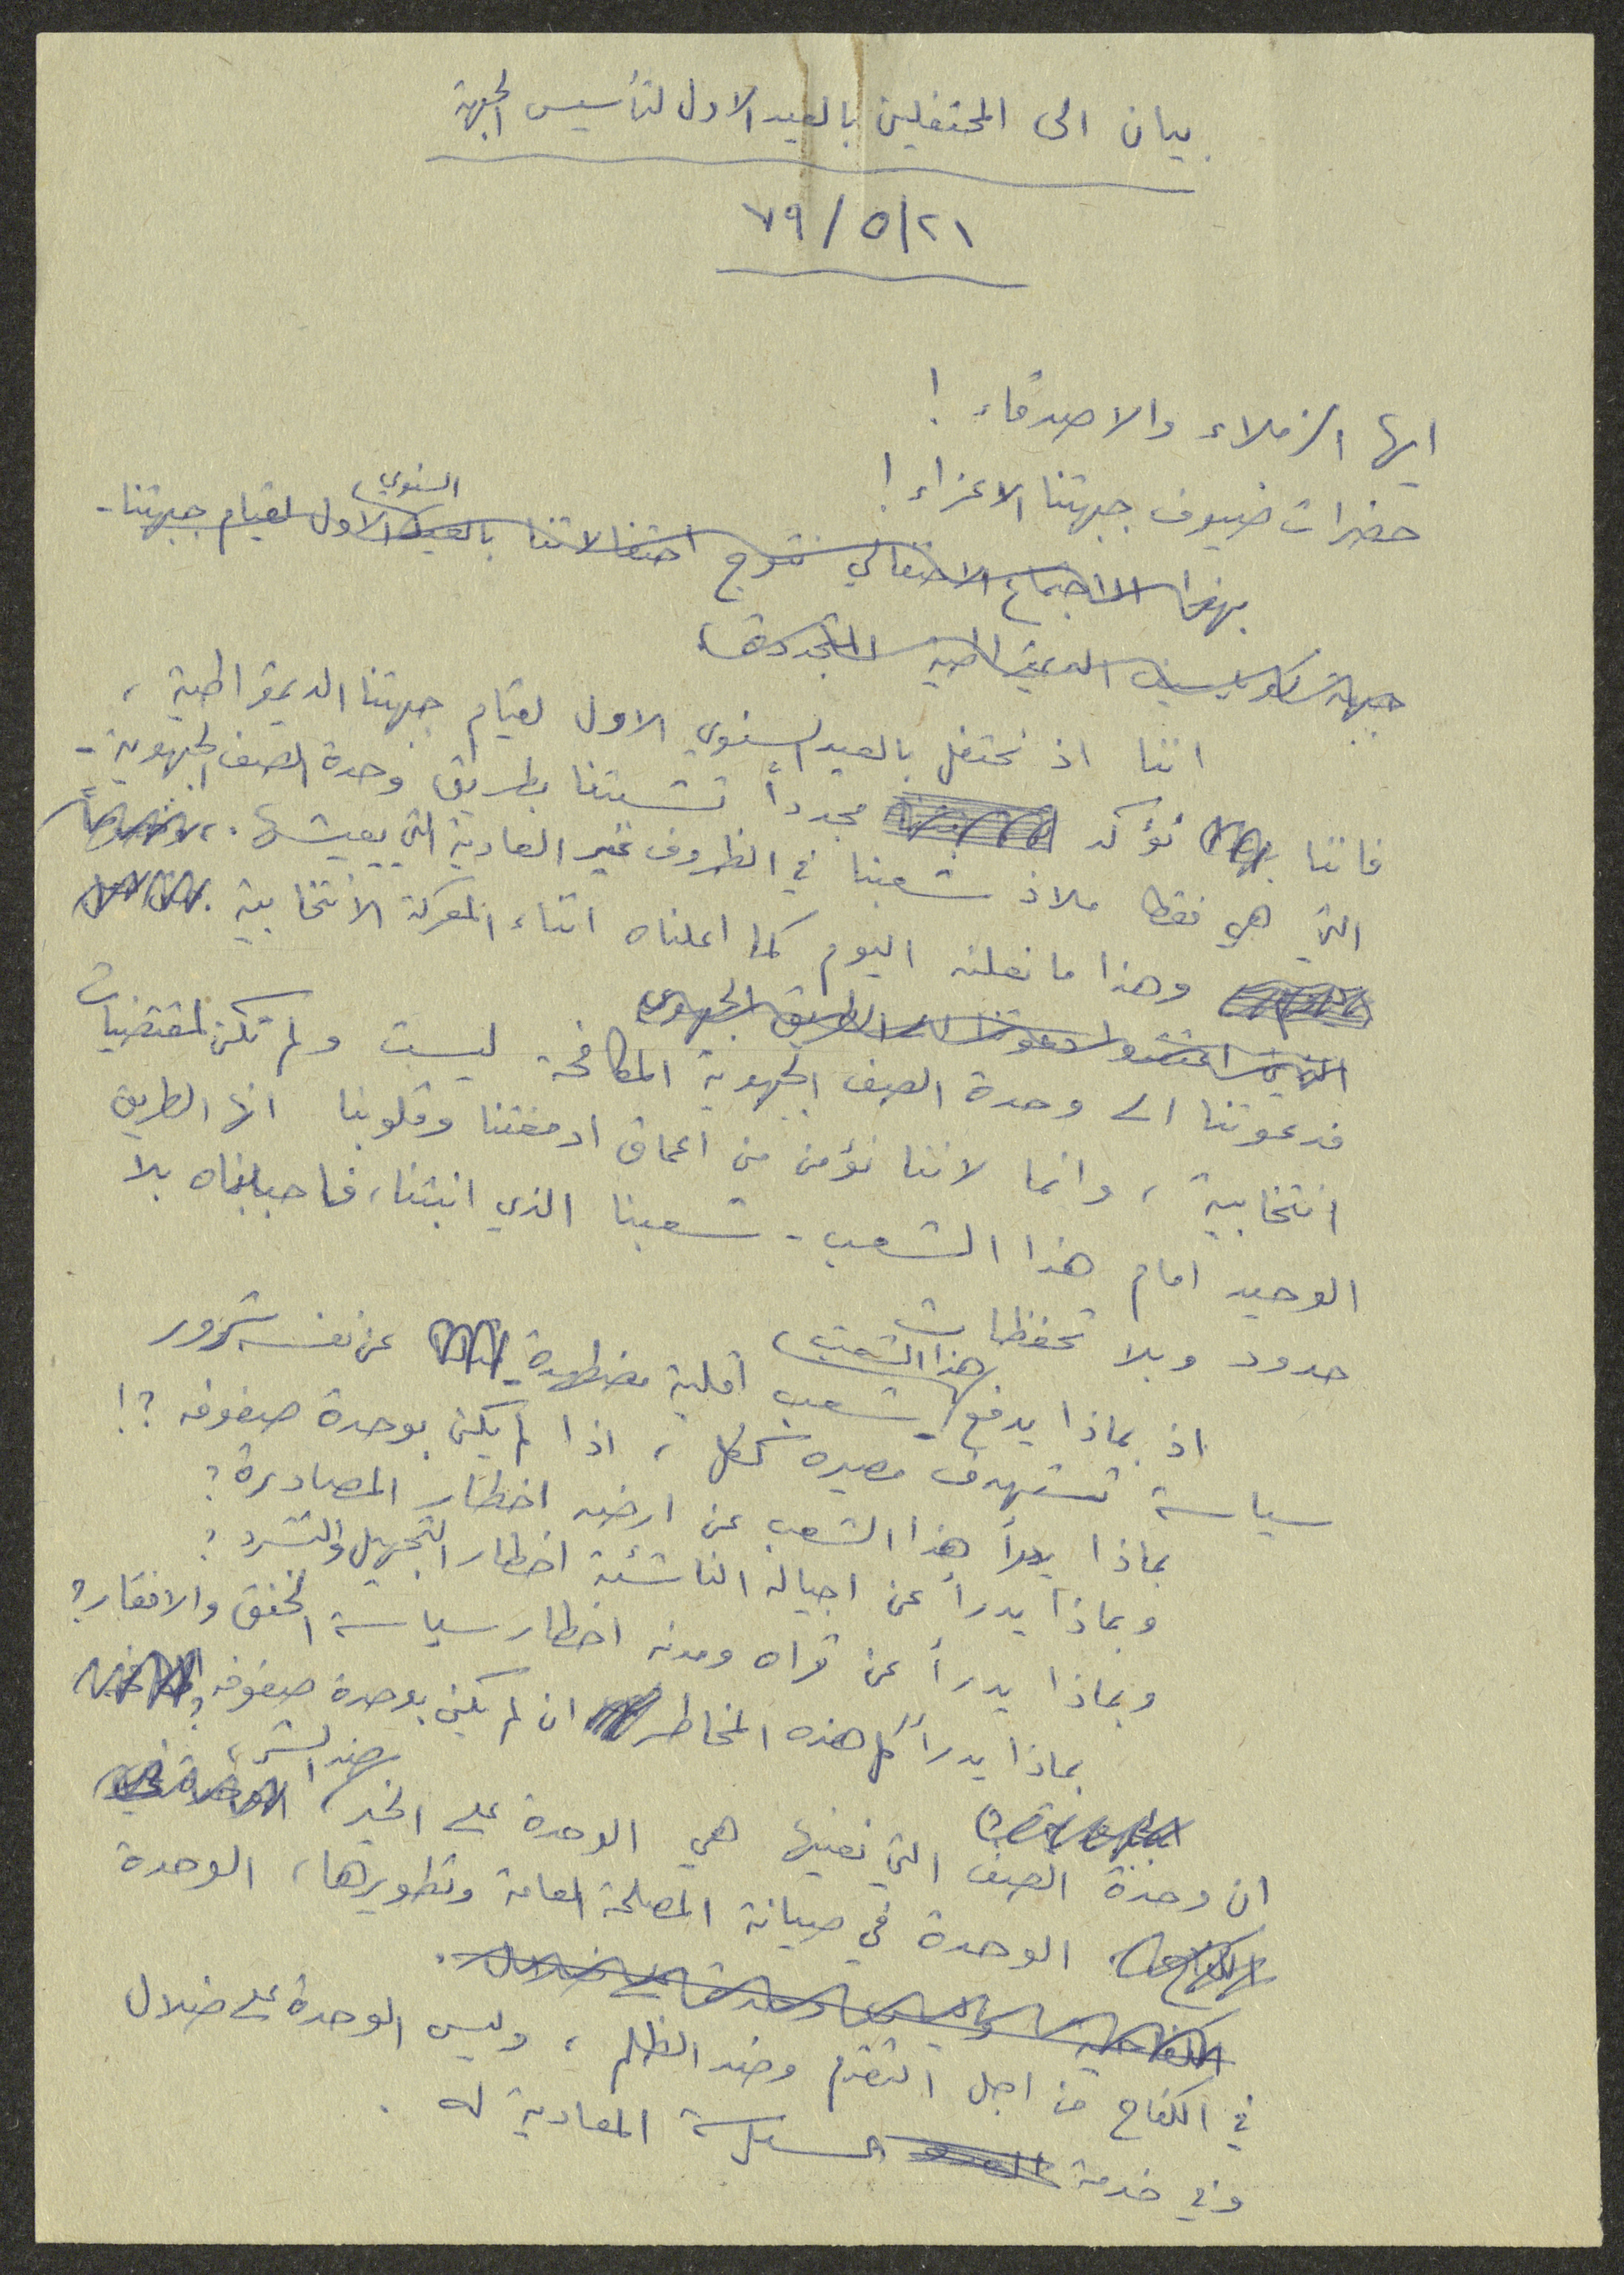 بيان الى المحتفلين بالعيد الاول لتأسيس الجبهة
٧٩/٥/٢١
ايها الزملاء والاصدقاء !
حضرات ضيوف جبهتنا الاعزاء !
السنوي
بهذا الاجتماع الاحتفالي نتوج احتفالاتنا بالعيد الاول لقيام جبهتنا -
جبهة الديمقراطية
اننا اذ نحتفل بالعيد السنوي الاول لقيام جبهتنا الديمقراطية ،
فاننا نؤكد مجدداً تشبثنا بطريق وحدة الصف الجبهوية -
التي هي فقط ملاذ شعبنا في الظروف غير العادية التي يعيشها .
وهذا ما نعلنه اليوم كما اعلناه اثناء المعركة الانتخابية .
الطريق الجبهوي
فدعوتنا الى وحدة الصف الجبهوية المكافحة ليست ولم تكن لمقتضيات
انتخابية ، وانما لاننا نؤمن من اعماق ادمغتنا وقلوبنا انها الطريق
الوحيد امام هذا الشعب - شعبنا الذي انبتنا ، فاحببناه بلا
حدود وبلا تحفظات
هذا الشعب ،
اذ بماذا يدفع شعب اقلية مضطهدة عن نفسه شرور
سياسة تستهدف مصيره ككل ، اذا لم يكن بوحدة صفوفه ؟!
بماذا يدرأ هذا الشعب عن ارضه اخطار المصادرة ؟
وبماذا يدرأ عن اجياله الناشئة اخطار التجهيل والتشرد ؟
وبماذا يدرأ عن قراه ومدنه اخطار سياسة الخنق والافقار ؟
بماذا يدرأ كل هذه المخاطر ان لم يكن بوحدة صفوفه ؟
ضد الشر ،
ان وحدة الصف التي نعنيها هي الوحدة على الخير
الوحدة في صيانة المصلحة العامة وتطويرها ، الوحدة
في الكفاح من اجل التقدم وضد الظلم ، وليس الوحدة على ضلال
وفي خدمة السياسة المعادية له .